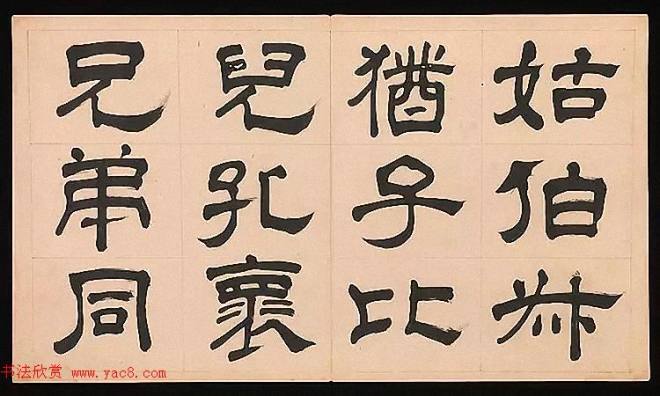 姑伯叔
猶子比
兒孔褱
兄弟同
书法欣赏 www.yac8.com